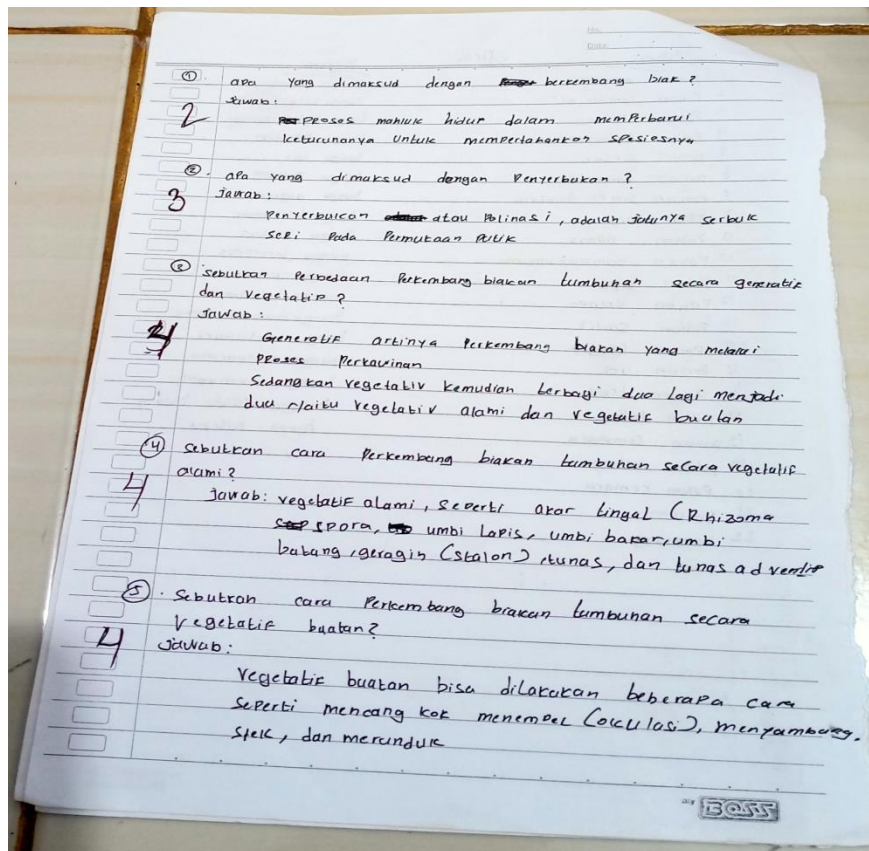 No.
Date.
① . apa yang dimaksud dengan berkembang biak ?
Jawab :
2 Proses mahluk hidup dalam memperbarui
keturunanya untuk mempertahankan spesiesnya
② . apa yang dimaksud dengan Penyerbukan ?
3 Jawab :
Penyerbukan atau Polinasi, adalah jatunya serbuk
seri Pada Permukaan Putik
③ sebutkan Perbedaan Perkembang biakan tumbuhan secara generatif
dan vegetatif ?
Jawab :
4 Generatif artinya Perkembang biakan yang melalui
Proses Perkawinan
Sedangkan vegetativ kemudian berbagi dua lagi menjadi
dua yaitu vegetativ alami dan vegetatif buatan
④ sebutkan cara Perkembang biakan tumbuhan secara vegetatif
alami ?
4 Jawab : vegetatif alami, seperti akar tingal (Rhizoma
spora, umbi Lapis, umbi bakar, umbi
batang, geragin (stalon), tunas, dan tunas adventif
⑤ . Sebutkan cara Perkembang biakan tumbuhan secara
Vegetatif buatan ?
4 Jawab :
Vegetatif buatan bisa dilakukan beberapa cara
seperti mencang kok menempel (okulasi), menyambung.
stek, dan merunduk
BOSS